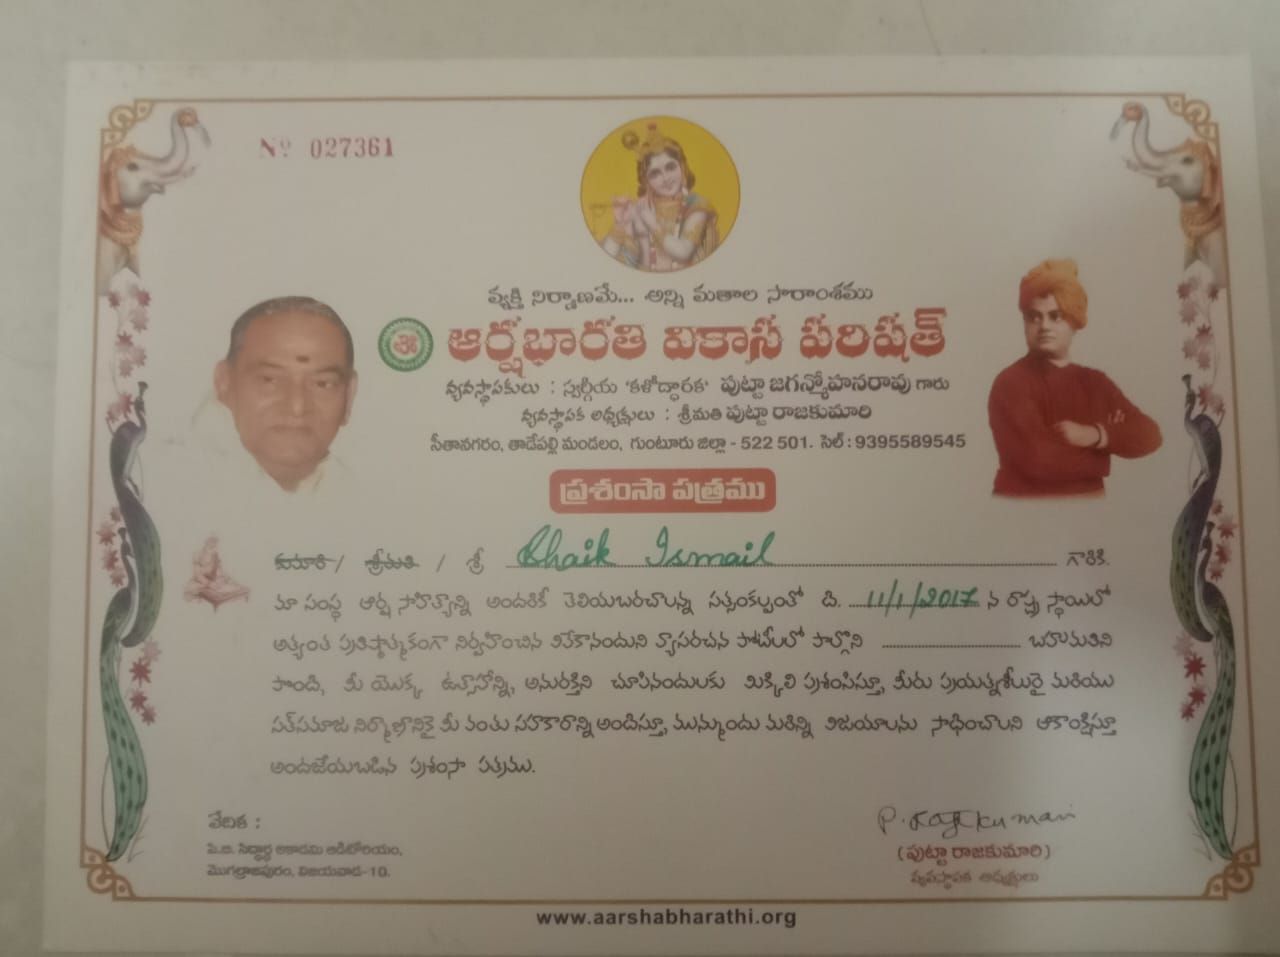 Nº 027361
వ్యక్తి నిర్మాణమే... అన్ని మతాల సారాంశము
ఆర్షభారతి వికాస పరిషత్
వ్యవస్థాపకులు : స్వర్గీయ 'కళోద్ధారక' పుట్టా జగన్మోహనరావు గారు
వ్యవస్థాపక అధ్యక్షులు : శ్రీమతి పుట్టా రాజకుమారి
సీతానగరం, తాడేపల్లి మండలం, గుంటూరు జిల్లా - 522 501. సెల్ : 9395589545
ప్రశంసా పత్రము
కుమారి / శ్రీమతి / శ్రీ Shaik Ismail గారికి.
మా సంస్థ ఆర్ష సాహిత్యాన్ని అందరికీ తెలియబరచాలన్న సత్సంకల్పంతో ది. 11/1/2017 న రాష్ట్ర స్థాయిలో
అత్యంత ప్రతిష్ఠాత్మకంగా నిర్వహించిన వివేకానందుని వ్యాసరచన పోటీలలో పాల్గొని ........................ బహుమతిని
పొంది, మీ యొక్క ఉత్సాహాన్ని, అనురక్తిని చూపినందులకు మిక్కిలి ప్రశంసిస్తూ, మీరు ప్రయత్నశీలురై మరియు
సత్‌సమాజ నిర్మాణానికై మీ వంతు సహకారాన్ని అందిస్తూ, మున్ముందు మరిన్ని విజయాలను సాధించాలని ఆకాంక్షిస్తూ
అందజేయబడిన ప్రశంసా పత్రము.
వేదిక :
పి.బి. సిద్ధార్థ అకాడమి ఆడిటోరియం,
మొగల్రాజపురం, విజయవాడ-10.
P. Rajakumari
(పుట్టా రాజకుమారి)
వ్యవస్థాపక అధ్యక్షులు
www.aarshabharathi.org